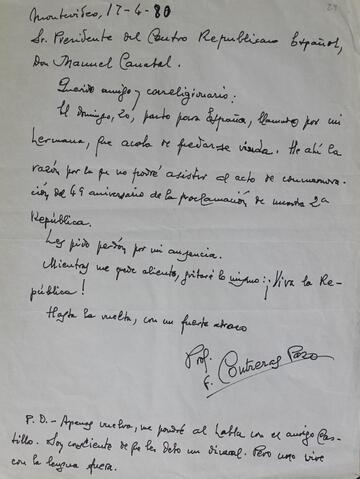 Montevideo, 17-4-80
Sr. Presidente del Centro Republicano Español,
Don Manuel Canatal.
Querido amigo y correligionario:
El domingo, 20, parto para España, llamado por mi
hermana, que acaba de quedarse viuda. He ahí la
razón por la que no podré asistir al acto de conmemora-
ción del 49 aniversario de la proclamación de nuestra 2ª
República.
Les pido perdón por mi ausencia.
Mientras me quede aliento, gritaré lo mismo: ¡Viva la Re-
pública!
Hasta la vuelta, con un fuerte abrazo
Prof.
F. Contreras Pazo
P.D.- Apenas vuelva, me pondré al habla con el amigo Cas-
tillo. Soy consciente de que les debo un dineral. Pero uno vive
con la lengua fuera.